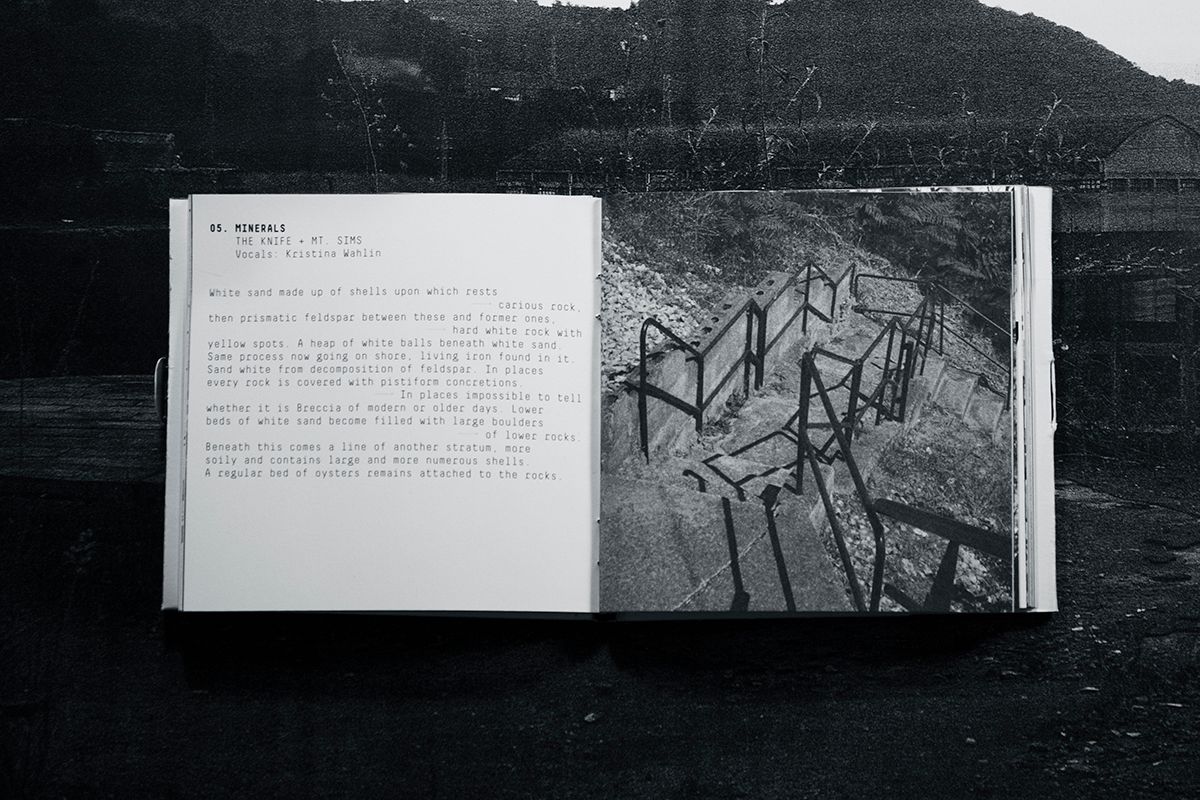 05. MINERALS
THE KNIFE + MT. SIMS
Vocals: Kristina Wahlin
White sand made up of shells upon which rests
carious rock,
then prismatic feldspar between these and former ones,
hard white rock with
yellow spots. A heap of white balls beneath white sand.
Same process now going on shore, living iron found in it.
Sand white from decomposition of feldspar. In places
every rock is covered with pistiform concretions.
In places impossible to tell
whether it is Breccia of modern or older days. Lower
beds of white sand become filled with large boulders
of lower rocks.
Beneath this comes a line of another stratum, more
soily and contains large and more numerous shells.
A regular bed of oysters remains attached to the rocks.